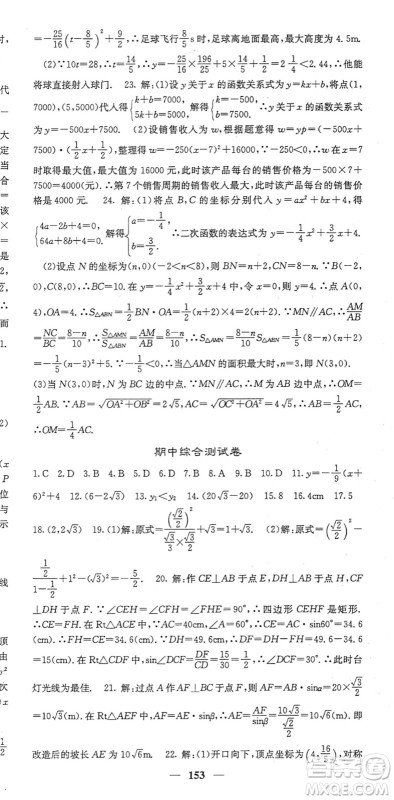 =-\frac{25}{16}(t-\frac{8}{5})^2+\frac{9}{2}，∴足球飞行\frac{8}{5}s时，足球离地面最高，最大高度为4.5m.
(2)∵10t=28，∴t=\frac{14}{5}，∴y=-\frac{25}{16}×\frac{196}{25}+5×\frac{14}{5}+2=\frac{15}{4}，∴他能
将球直接射入球门. 23. 解：(1)设y关于x的函数关系式为y=kx+b，将点(1,
7000)，(5,5000)代入得{k+b=7000, 5k+b=5000.解得{k=-500, b=7500.∴y关于x的函数关系式
为y=-500x+7500. (2)设销售收入为w，根据题意得w=yp=(-500x+7500)
·(\frac{1}{2}x+\frac{1}{2})，整理得w=-250(x-7)²+16000，∵-250<0，∴当x=7
时取得最大值，最大值为16000元，此时该产品每台的销售价格为-500×7+
7500=4000元，∴第7个销售周期的销售收入最大，此时该产品每台的销售价
格是4000元. 24. 解：(1)将点B，C的坐标分别代入y=ax²+bx+4得
{4a-2b+4=0, 64a+8b+4=0.解得{a=-\frac{1}{4}, b=\frac{3}{2}.∴二次函数的表达式为y=-\frac{1}{4}x²+\frac{3}{2}x+4
(2)设点N的坐标为(n,0)(-2<n<8)，则BN=n+2，CN=8-n. ∵B(-2,
0)，C(8,0)，∴BC=10. 在y=-\frac{1}{4}x²+\frac{3}{2}x+4中，令x=0，得y=4，∴A(0,
4)，OA=4. ∴S△ABN=\frac{1}{2}BN·OA=\frac{1}{2}(n+2)×4=2(n+2). ∵MN∥AC，∴\frac{AM}{AB}
=\frac{NC}{BC}=\frac{8-n}{10}，∴\frac{S△AMN}{S△ABN}=\frac{AM}{AB}=\frac{8-n}{10}，∴S△AMN=\frac{8-n}{10}S△ABN=\frac{1}{5}(8-n)(n+2)
=-\frac{1}{5}(n-3)²+5，∴当△AMN的面积最大时，n=3，此时N(3,0).
(3)当N(3,0)时，N为BC边的中点，∵MN∥AC，∴M为AB边中点，∴OM=
\frac{1}{2}AB. ∵AB=\sqrt{OA²+OB²}=2\sqrt{5}，AC=\sqrt{OC²+OA²}=4\sqrt{5}，∴AB=\frac{1}{2}AC，∴OM
=\frac{1}{4}AC.
期中综合测试卷
1. C 2. D 3. B 4. C 5. D 6. D 7. D 8. C 9. B 10. D 11. y=-\frac{1}{9}(x
-6)²+4 12. (6-2\sqrt{3}) 13. y₁<y₂ 14. 60° 15. 8 16. 4cm 17. 5
18. (2,2\sqrt{3}) 19. (1)解：原式=\frac{(\frac{\sqrt{2}}{2})^2}{\frac{\sqrt{3}}{3}×\frac{\sqrt{3}}{2}}+\sqrt{3}=1+\sqrt{3}. (2)解：原式=(\frac{\sqrt{2}}{2})^2-
\frac{\frac{1}{2}}{\frac{1}{2}}+1²-(\sqrt{3})²=-\frac{5}{2}. 20. 解：作CE⊥AB于点E，DH⊥AB于点H，CF
⊥DH于点F. ∵∠CEH=∠CFH=∠FHE=90°，∴四边形CEHF是矩形.
∴CE=FH. 在Rt△ACE中，∵AC=40cm，∠A=60°，∴CE=AC·sin60°=
34.6(cm)，∴FH=CE=34.6(cm)，∵DH=49.6cm，∴DF=DH-FH=49.6-34.6
=15(cm). 在Rt△CDF中，sin∠DCF=\frac{DF}{CD}=\frac{15}{30}=\frac{1}{2}，∴∠DCF=30°，∴此时台
灯光线为最佳. 21. 解：过点A作AF⊥BC于点F，在Rt△ABF中，AF=ABsinβ
=20×\frac{\sqrt{3}}{2}=10\sqrt{3}(m)，在Rt△AEF中，sinα=\frac{AF}{AE}，AE=\frac{AF}{sinβ}=10\sqrt{6}(m)，即
改造后的坡长AE为10\sqrt{6}m. 22. 解：(1)开口向下，顶点坐标为(4,\frac{16}{3})，对称
153